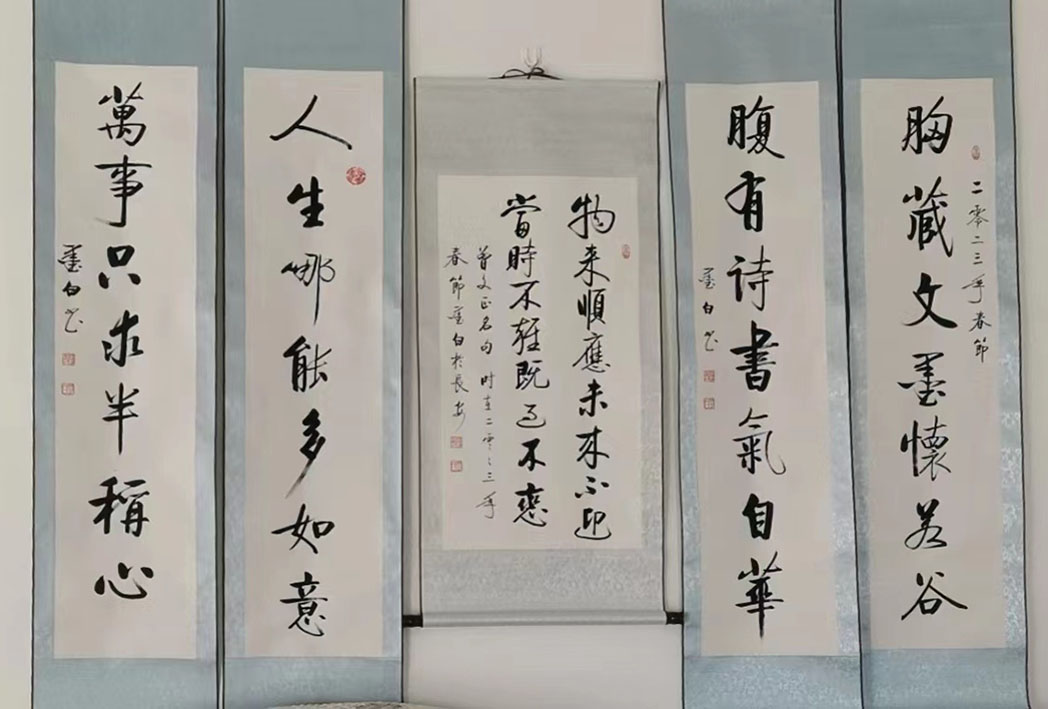 二零二三年春節
胸藏文墨懷若谷
腹有诗書氣自華
墨白书
物来順應未来不迎
當時不雜既过不戀
曾文正名句 时在二零二三年
春節墨白於長安
人生哪能多如意
萬事只求半稱心
墨白书